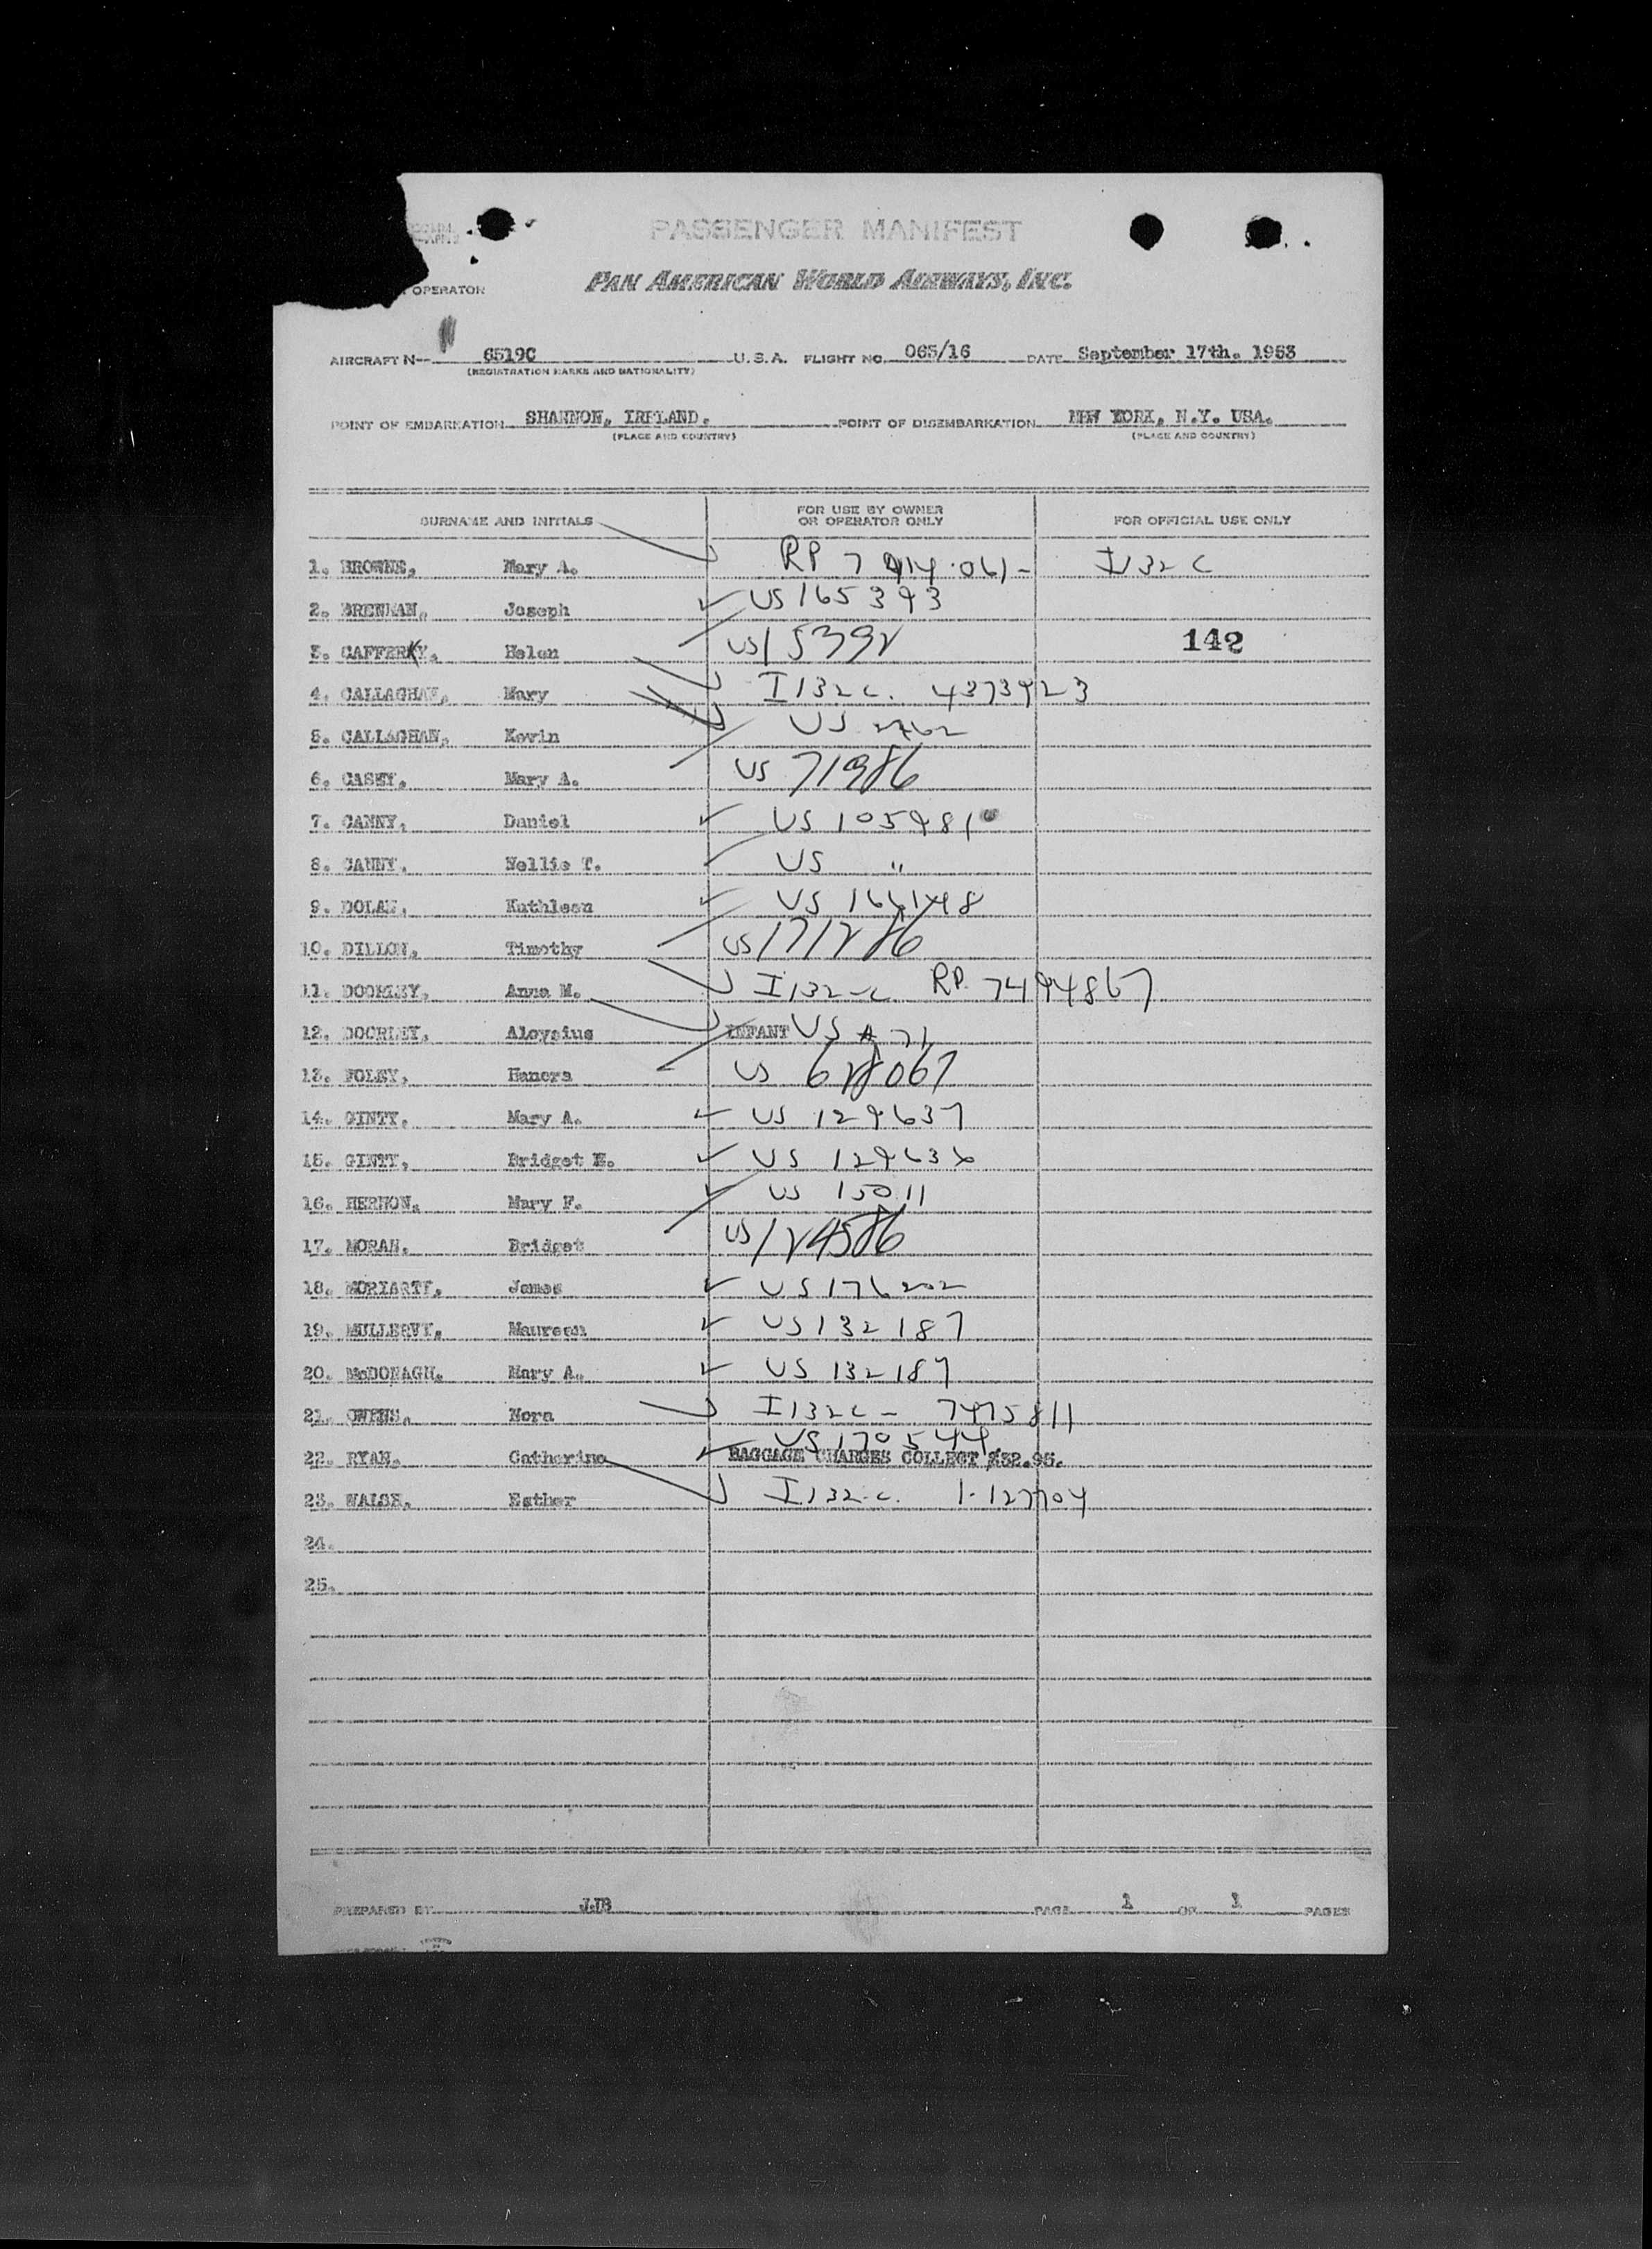 PASSENGER MANIFEST
PAN AMERICAN WORLD AIRWAYS, INC.
OPERATOR
AIRCRAFT N-- 6519C U.S.A. FLIGHT NO. 065/16 DATE September 17th. 1953
(REGISTRATION MARKS AND NATIONALITY)
POINT OF EMBARKATION SHANNON, IRELAND. POINT OF DISEMBARKATION NEW YORK, N.Y. USA.
(PLACE AND COUNTRY) (PLACE AND COUNTRY)
SURNAME AND INITIALS FOR USE BY OWNER OR OPERATOR ONLY FOR OFFICIAL USE ONLY
1. BROWNE, Mary A. RP 7 I132C
2. BRENNAN, Joseph US 165393
3. CAFFERKY, Helen US 15392 142
4. CALLAGHAN, Mary I132C. 4373923
5. CALLAGHAN, Kevin US 2762
6. CASEY, Mary A. US 71986
7. CANNY, Daniel US 105981
8. CANNY, Nellie T. US "
9. DOLAN, Kathleen US
10. DILLON, Timothy US 171286
11. DOORLEY, Anne M. I132-C RP 7494867
12. DOORLEY, Aloysius INFANT US A 71
13. FOLEY, Hanora US 628067
14. GINTY, Mary A. US 129637
15. GINTY, Bridget E. US 129636
16. HERNON, Mary F. US 15011
17. MORAN, Bridget US 124586
18. MORIARTY, James US 176202
19. MULLERVY, Maureen US 132187
20. McDONAGH, Mary A. US 132189
21. OWENS, Nora I132C - 7475811
22. RYAN, Catherine US 170544 BAGGAGE CHARGES COLLECT $32.95.
23. WALSH, Esther I132-C. 1-127704
24.
25.
PREPARED BY JJB PAGE 1 OF 1 PAGES